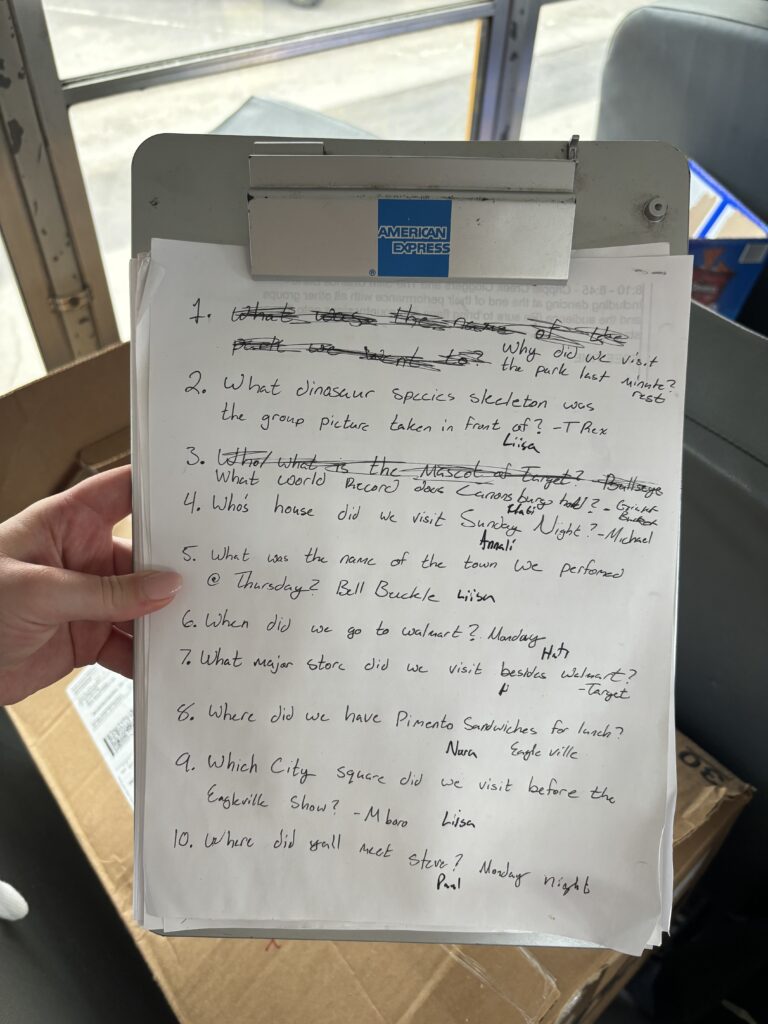 AMERICAN
EXPRESS
®
8:10 - 8:45 - Cripple Creek Cloggers and
including dancing at the end of their performance with all other groups
1. What was the name of the
park we went to? Why did we visit
the park last minute?
rest
2. What dinosaur species skeleton was
the group picture taken in front of? - T Rex
Liisa
3. Who/what is the Mascot of Target? - Bullseye
What world Record does Cannonsburgh hold? -
4. Who's house did we visit Sunday Night? - Michael
Annali
5. What was the name of the town we performed
@ Thursday? Bell Buckle Liisa
6. When did we go to walmart? Monday
Hati
7. What major store did we visit besides walmart?
- Target
8. Where did we have Pimento Sandwiches for lunch?
Nora Eagleville
9. Which City square did we visit before the
Eagleville Show? - Mboro Liisa
10. Where did yall meet steve? Monday night
Paul
30